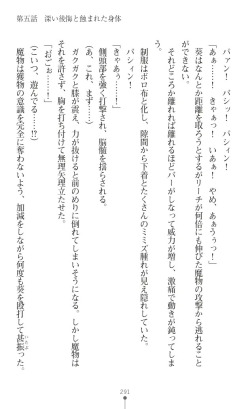 第五話　深い後悔と蝕まれた身体
バァン！　バシッ！　バシィン！
「あぁ……！　きゃぁ……！　いあぁ！　やめ、あぁぁっ！」
葵はなんとか距離を取ろうとするがリーチが何倍にも伸びた魔物の攻撃から逃れること
ができない。
それどころか離れれば離れるほどバーがしなって威力が増し、激痛で動きが鈍ってしま
う。
制服はボロ布と化し、隙間から下着とたくさんのミミズ腫れが見え隠れしていた。
バシィン！
「きゃぁぅ……！」
側頭部を強く打撃され、脳髄を揺らされる。
（あ、これ、まず……）
ガクガクと膝が震え、力が抜けると前のめりに倒れてしまいそうになる。しかし魔物は
それを許さず、胸を打ち付けて無理矢理立たせた。
「おごぉ……！」
（こいつ、遊んでる……!?）
魔物は獲物の意識を完全に奪わないよう、加減をしながら何度も葵を殴打して甚振った。
291